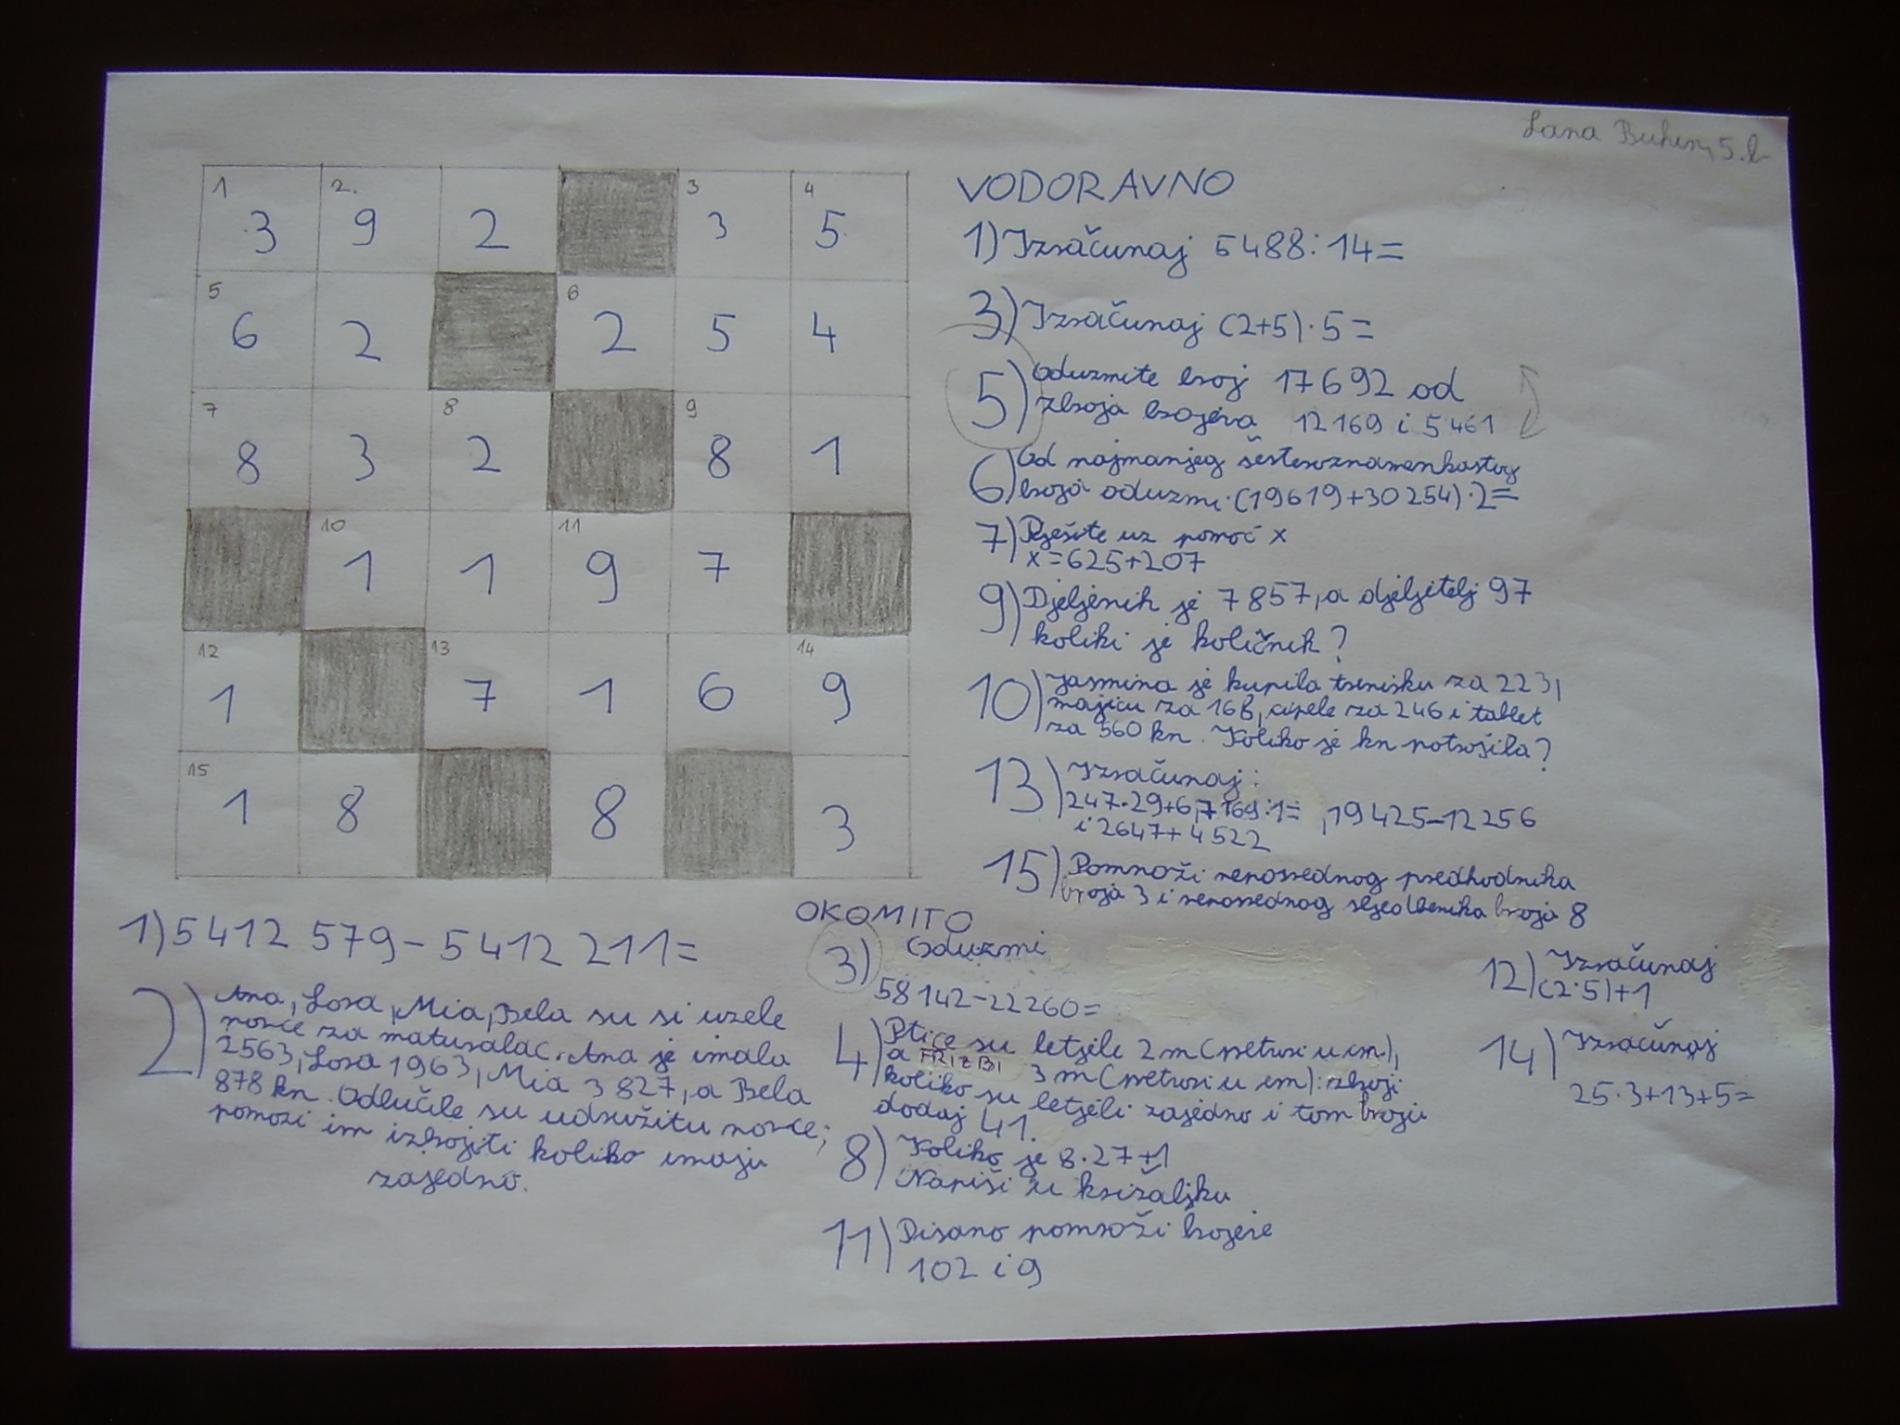 Lana Buhin, 5.b
1 2. 3 4
3 9 2 3 5
5 6
6 2 2 5 4
7 8 9
8 3 2 8 1
10 11
1 1 9 7
12 13 14
1 7 1 6 9
15
1 8 8 3
VODORAVNO
1) Izračunaj 5488:14=
3) Izračunaj (2+5)·5=
5) Oduzmite broj 17692 od
zbroja brojeva 12169 i 5461
6) Od najmanjeg šesteroznamenkastog
broja oduzmi (19619+30254)·2=
7) Riješite uz pomoć x
x=625+207
9) Djeljenik je 7857, a djeljitelj 97
koliki je količnik?
10) Jasmina je kupila trenirku za 223,
majicu za 168, cipele za 246 i tablet
za 560 kn. Koliko je kn potrošila?
13) Izračunaj:
247·29+6, 7169:1=, 19425-12256
i 2647+4522
15) Pomnoži neposrednog predhodnika
broja 3 i neposrednog sljedbenika broja 8
OKOMITO
1) 5412 579-5412 211=
2) Ana, Lora, Mia, Bela su si uzele
novce za maturalac. Ana je imala
2563, Lora 1963, Mia 3 827, a Bela
878 kn. Odlučile su udružitu novce;
pomozi im izbrojiti koliko imaju
zajedno.
3) Oduzmi
58142-22260=
4) Ptice su letjele 2m (pretvori u cm),
a FRIZBI 3m (pretvori u cm): zbroji
koliko su letjeli zajedno i tom broju
dodaj 41.
8) Koliko je 8·27+1
Napiši u križaljku
11) Pisano pomnoži brojeve
102 i 9
12) Izračunaj
(2·5)+1
14) Izračunaj
25·3+13+5=